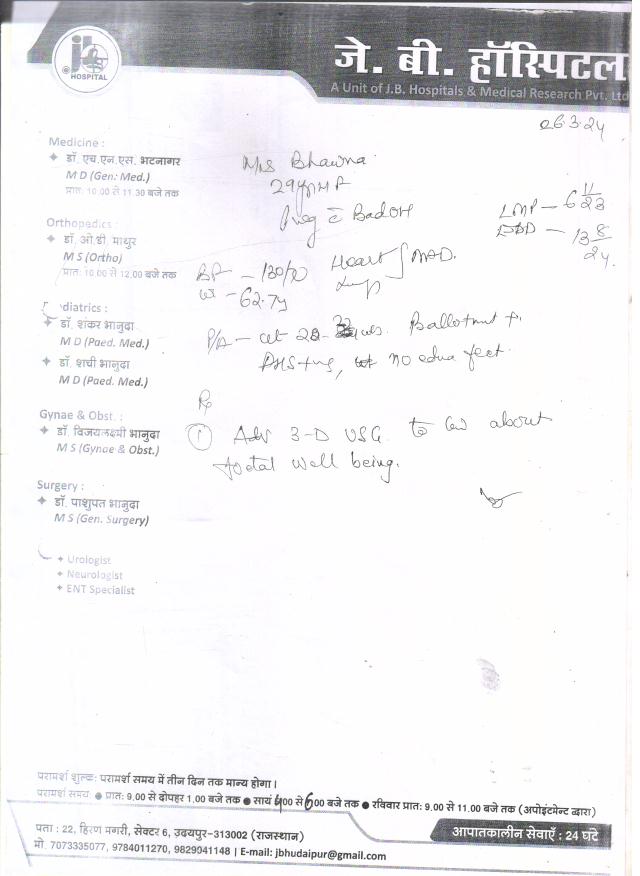 JB
HOSPITAL
जे. बी. हॉस्पिटल
A Unit of J.B. Hospitals & Medical Research Pvt. Ltd
26.3.24
Medicine :
डॉ. एच.एन.एस. भटनागर
M D (Gen: Med.)
प्रात: 10.00 से 11.30 बजे तक
Mrs Bhawna
29y
Preg c BadOH
LMP - 6 11/23
EDD - 13 8/24.
Orthopedics :
डॉ. ओ.डी. माथुर
M S (Ortho)
प्रात: 10.00 से 12.00 बजे तक
BP - 130/70
Heart
NAD.
wt - 62.7
diatrics :
डॉ. शंकर भानुदा
M D (Paed. Med.)
डॉ. शची भानुदा
M D (Paed. Med.)
P/A - ut Ballotment
FHS +ng, no edma feet.
Rx
Gynae & Obst. :
डॉ. विजयलक्ष्मी भानुदा
M S (Gynae & Obst.)
① Adv 3-D USG to about
foetal well being.
Surgery :
डॉ. पाशुपत भानुदा
M S (Gen. Surgery)
Urologist
Neurologist
ENT Specialist
परामर्श शुल्क: परामर्श समय में तीन दिन तक मान्य होगा।
परामर्श समय: ● प्रात: 9.00 से दोपहर 1.00 बजे तक ● सायं 4.00 से 6.00 बजे तक ● रविवार प्रात: 9.00 से 11.00 बजे तक (अपोइंटमेन्ट द्वारा)
पता : 22, हिरण मगरी, सेक्टर 6, उदयपुर-313002 (राजस्थान)
आपातकालीन सेवाएँ : 24 घंटे
मो. 7073335077, 9784011270, 9829041148 | E-mail: jbhudaipur@gmail.com